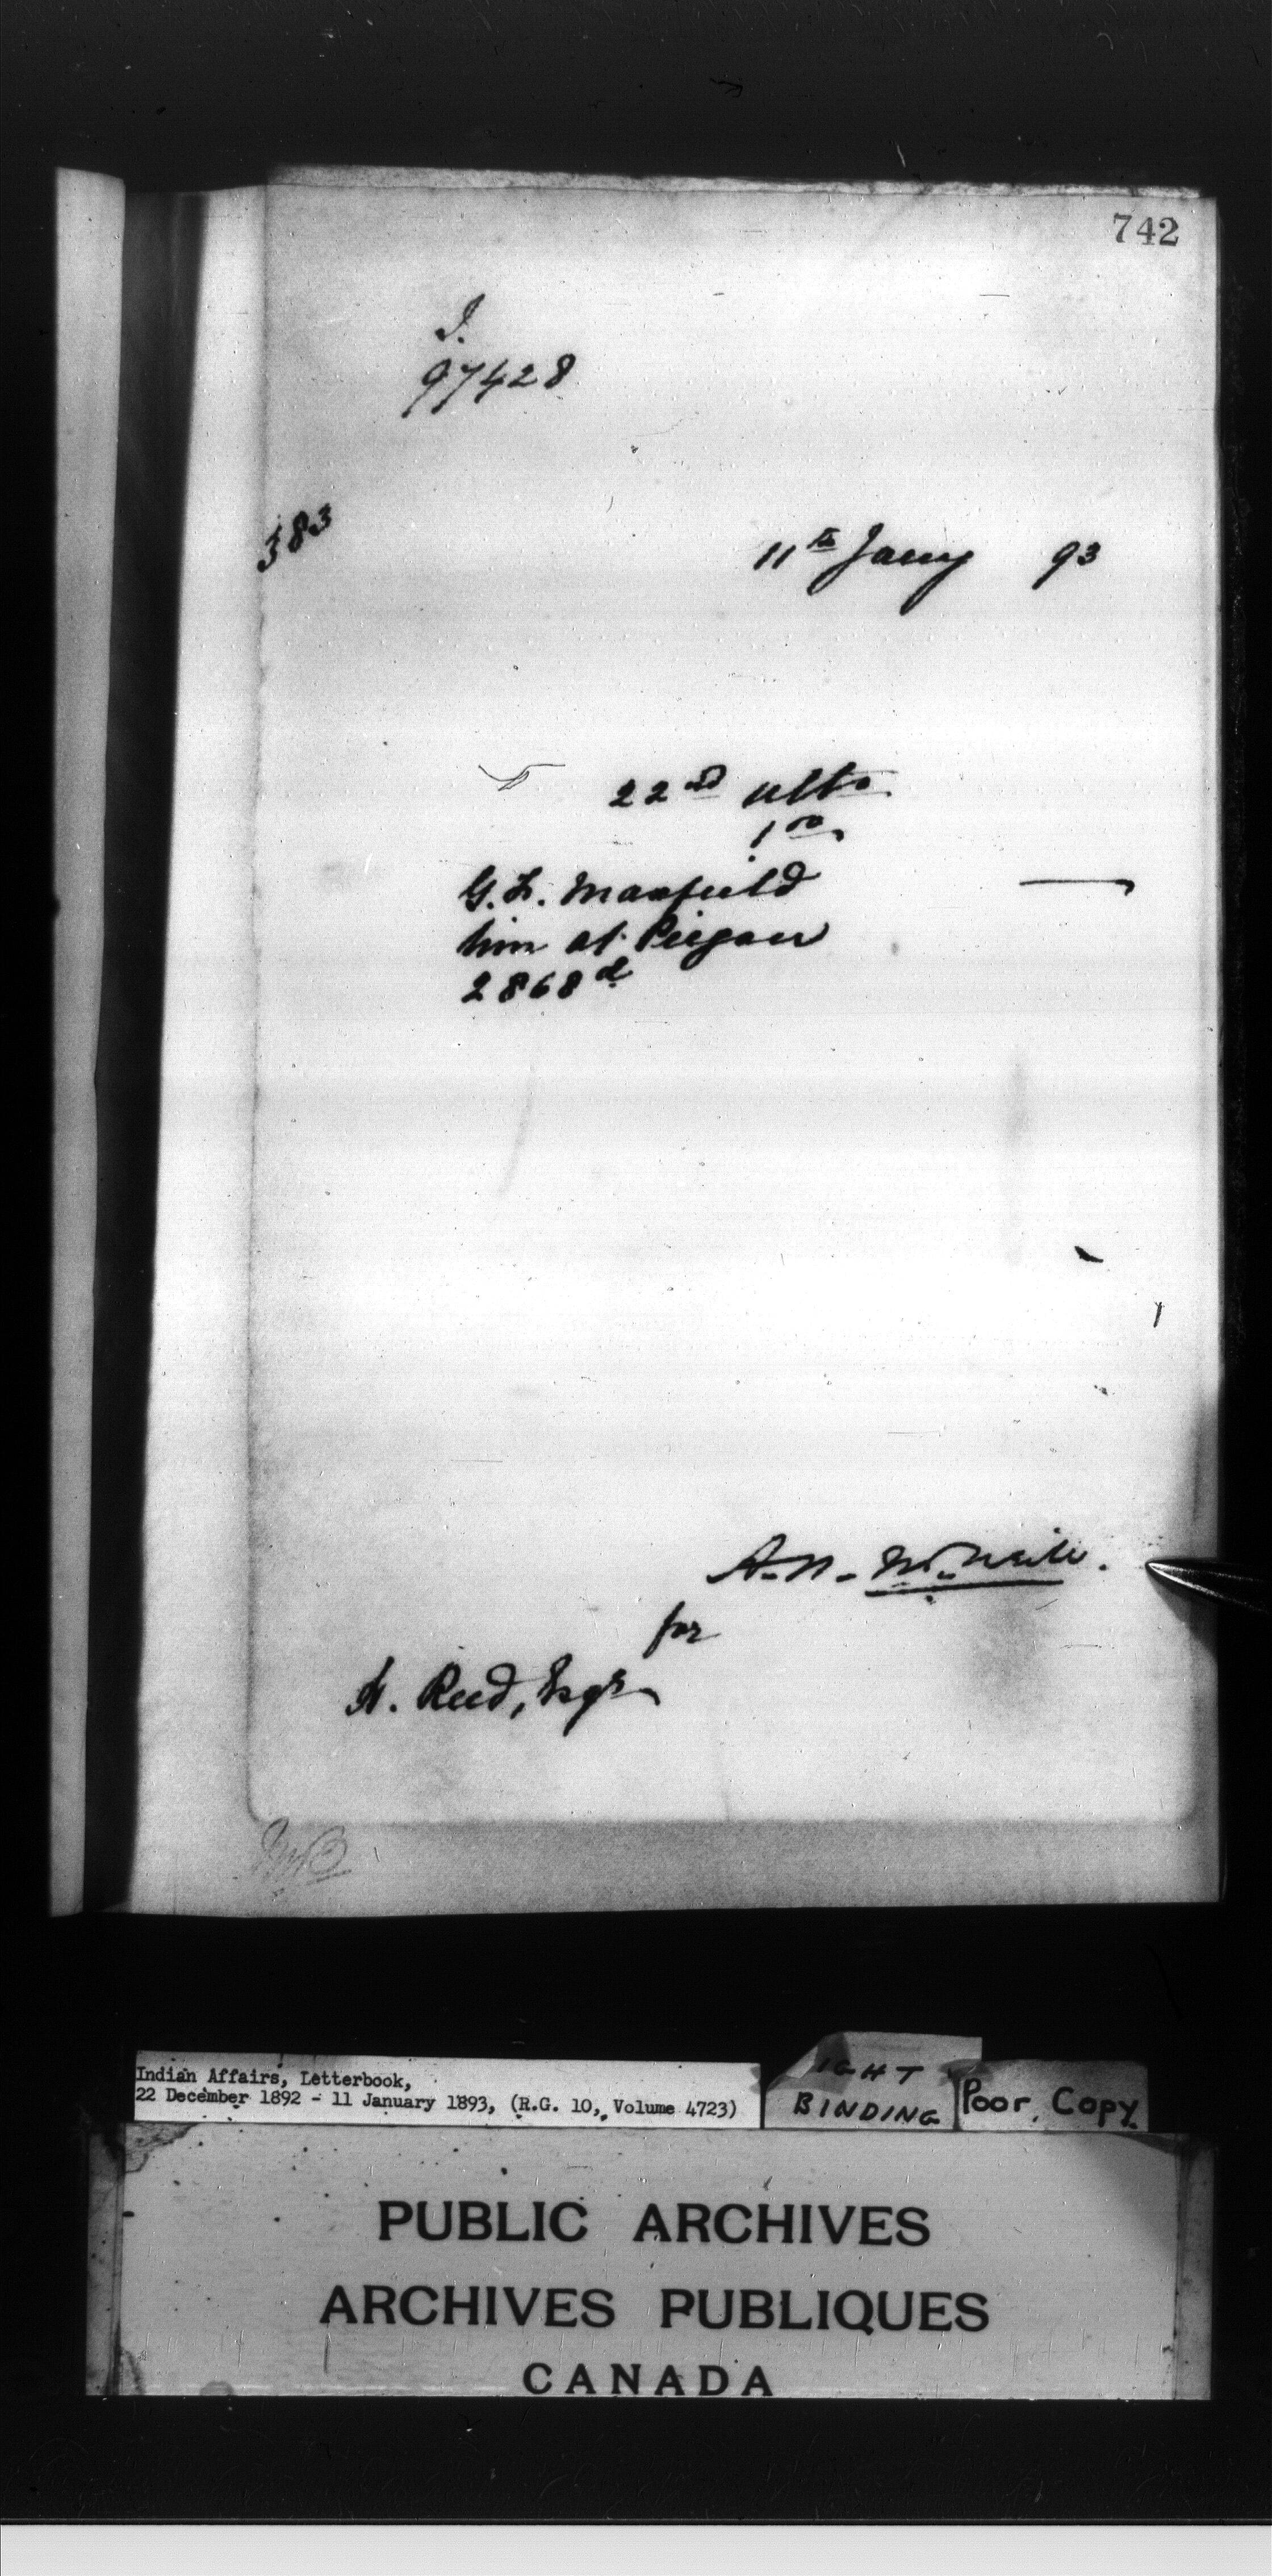 742
J.
97428
383
11th Jany 93
22nd ulto
1 00
G. L. Maxfield
him at Piegan
2868 d
A. N. McNeill.
for
H. Reed, Esqr
Indian Affairs, Letterbook,
22 December 1892 - 11 January 1893, (R.G. 10, Volume 4723)
IGHT
BINDING
Poor Copy
PUBLIC ARCHIVES
ARCHIVES PUBLIQUES
CANADA